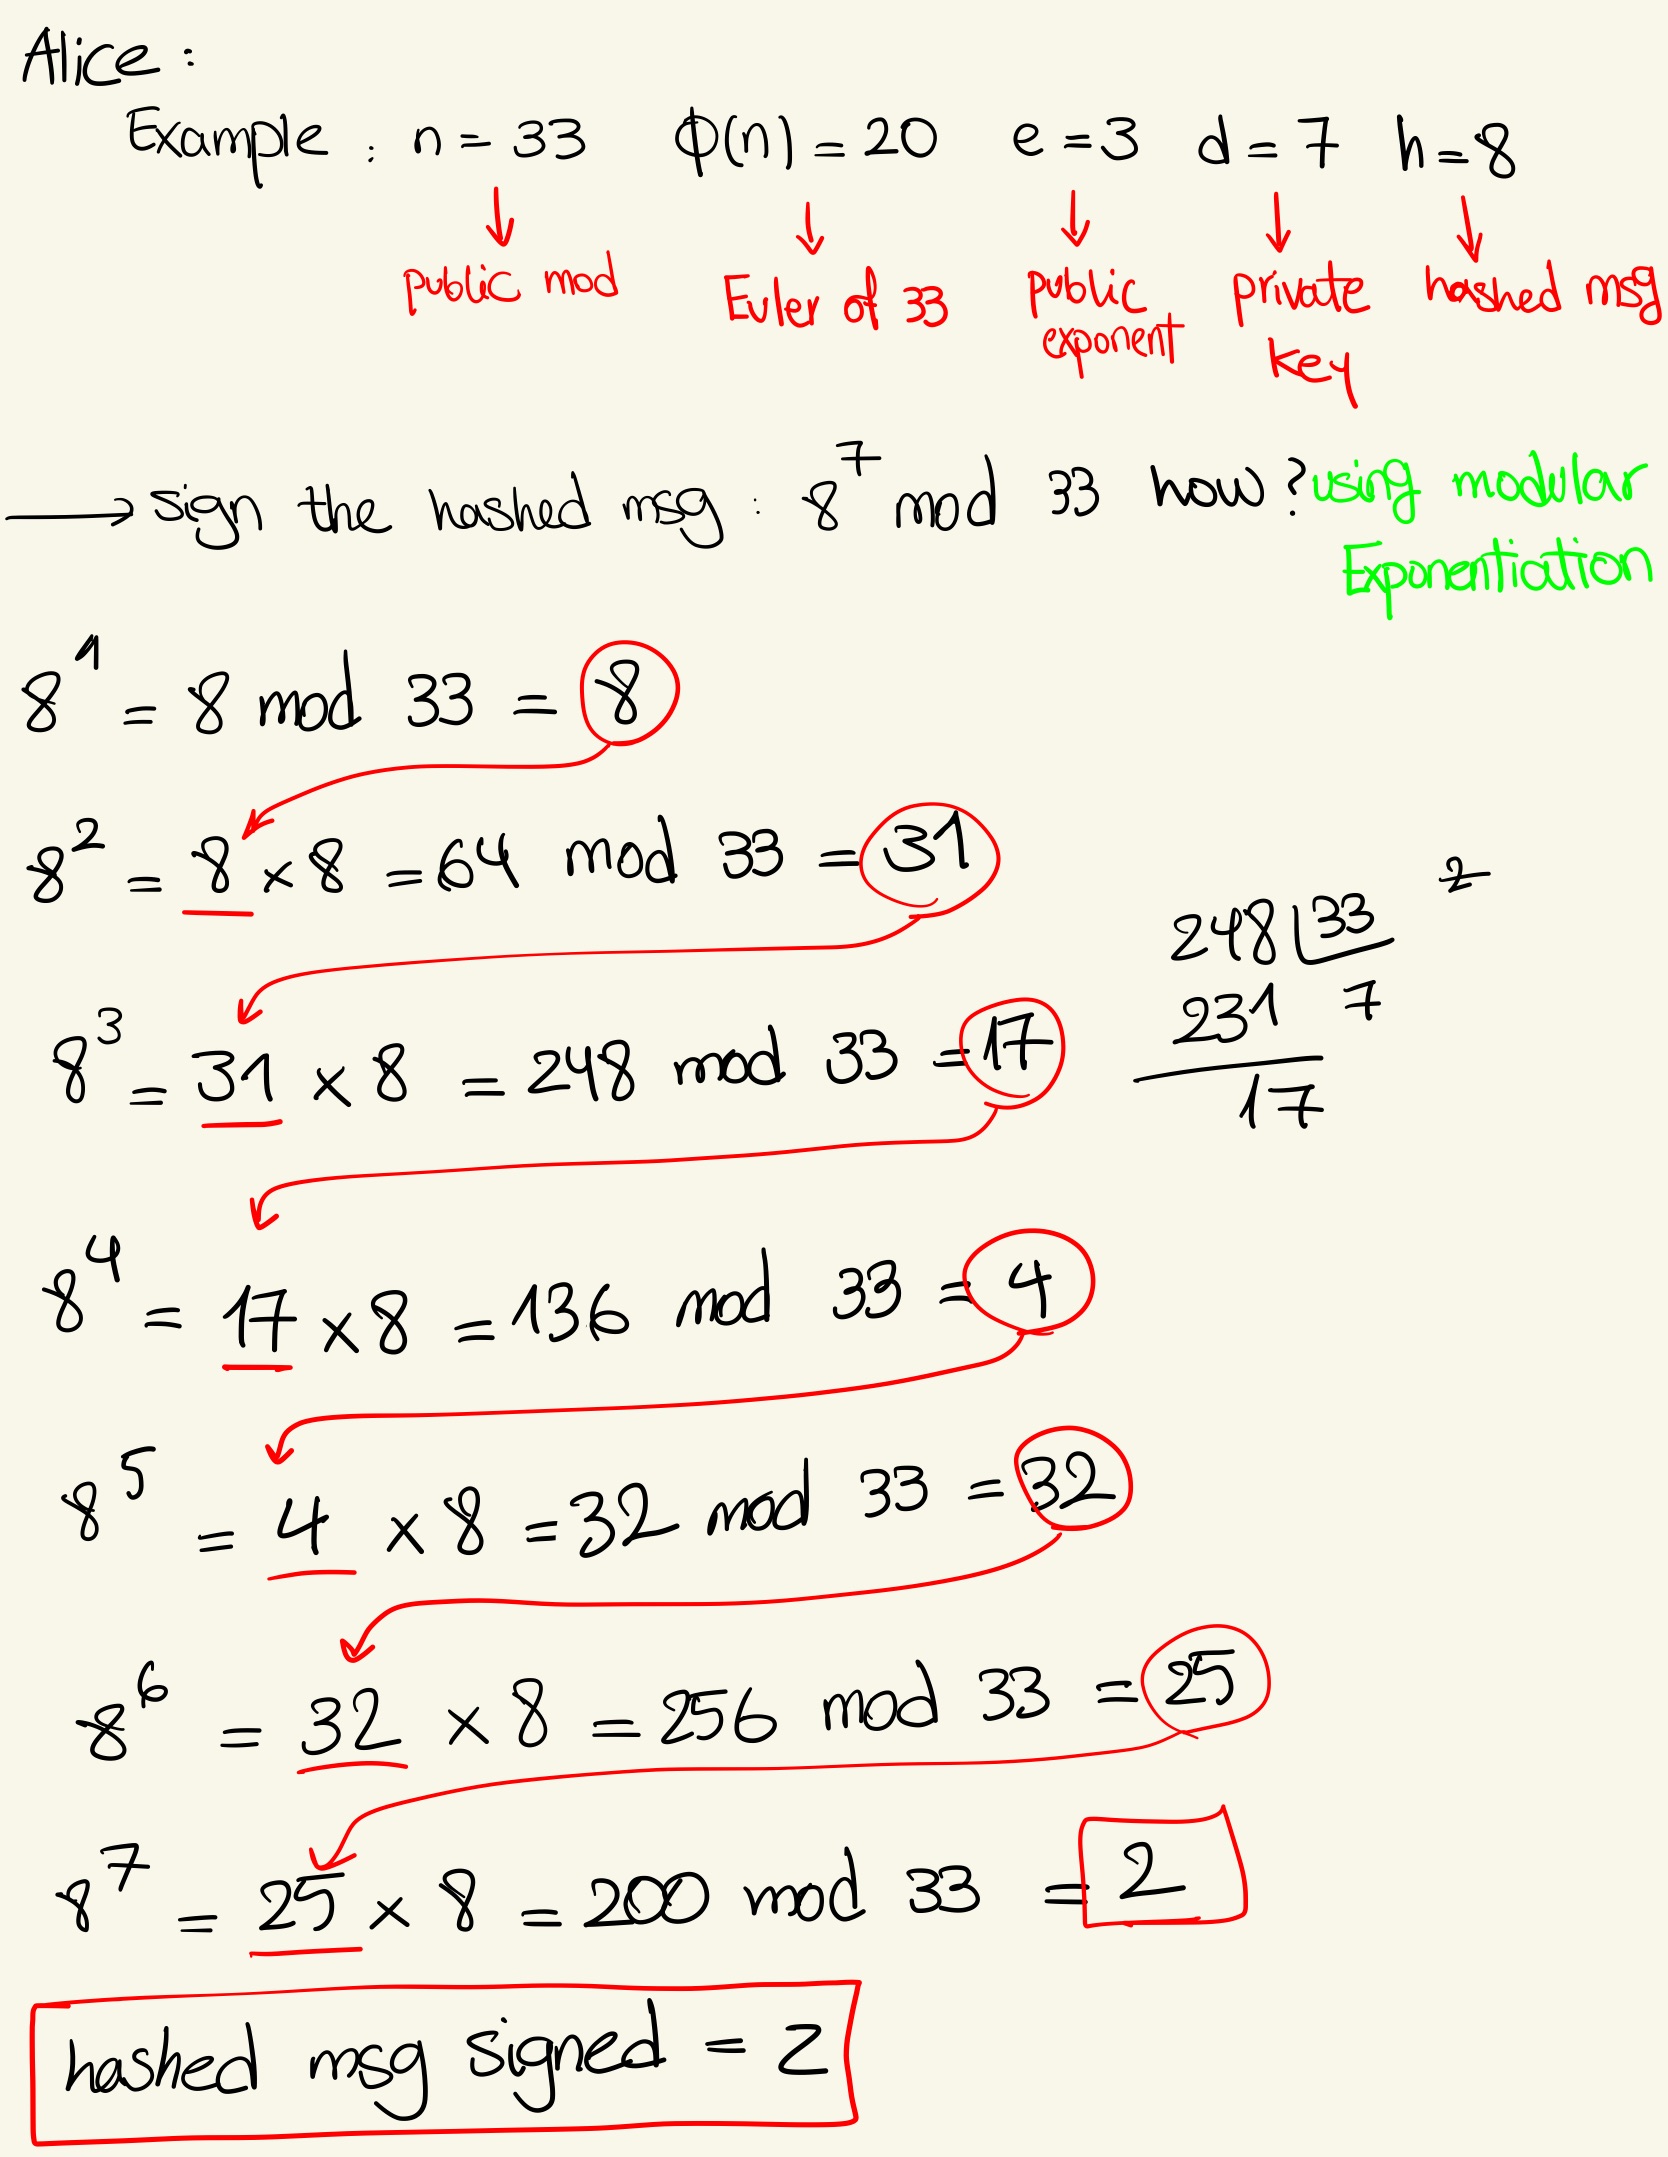 Alice :
Example : n = 33 ϕ(n) = 20 e = 3 d = 7 h = 8
public mod Euler of 33 public exponent private key hashed msg
→ sign the hashed msg : 8⁷ mod 33 how? using modular
Exponentiation
8¹ = 8 mod 33 = 8
8² = 8 × 8 = 64 mod 33 = 31
248 | 33
231 7
17
8³ = 31 × 8 = 248 mod 33 = 17
8⁴ = 17 × 8 = 136 mod 33 = 4
8⁵ = 4 × 8 = 32 mod 33 = 32
8⁶ = 32 × 8 = 256 mod 33 = 25
8⁷ = 25 × 8 = 200 mod 33 = 2
hashed msg signed = 2